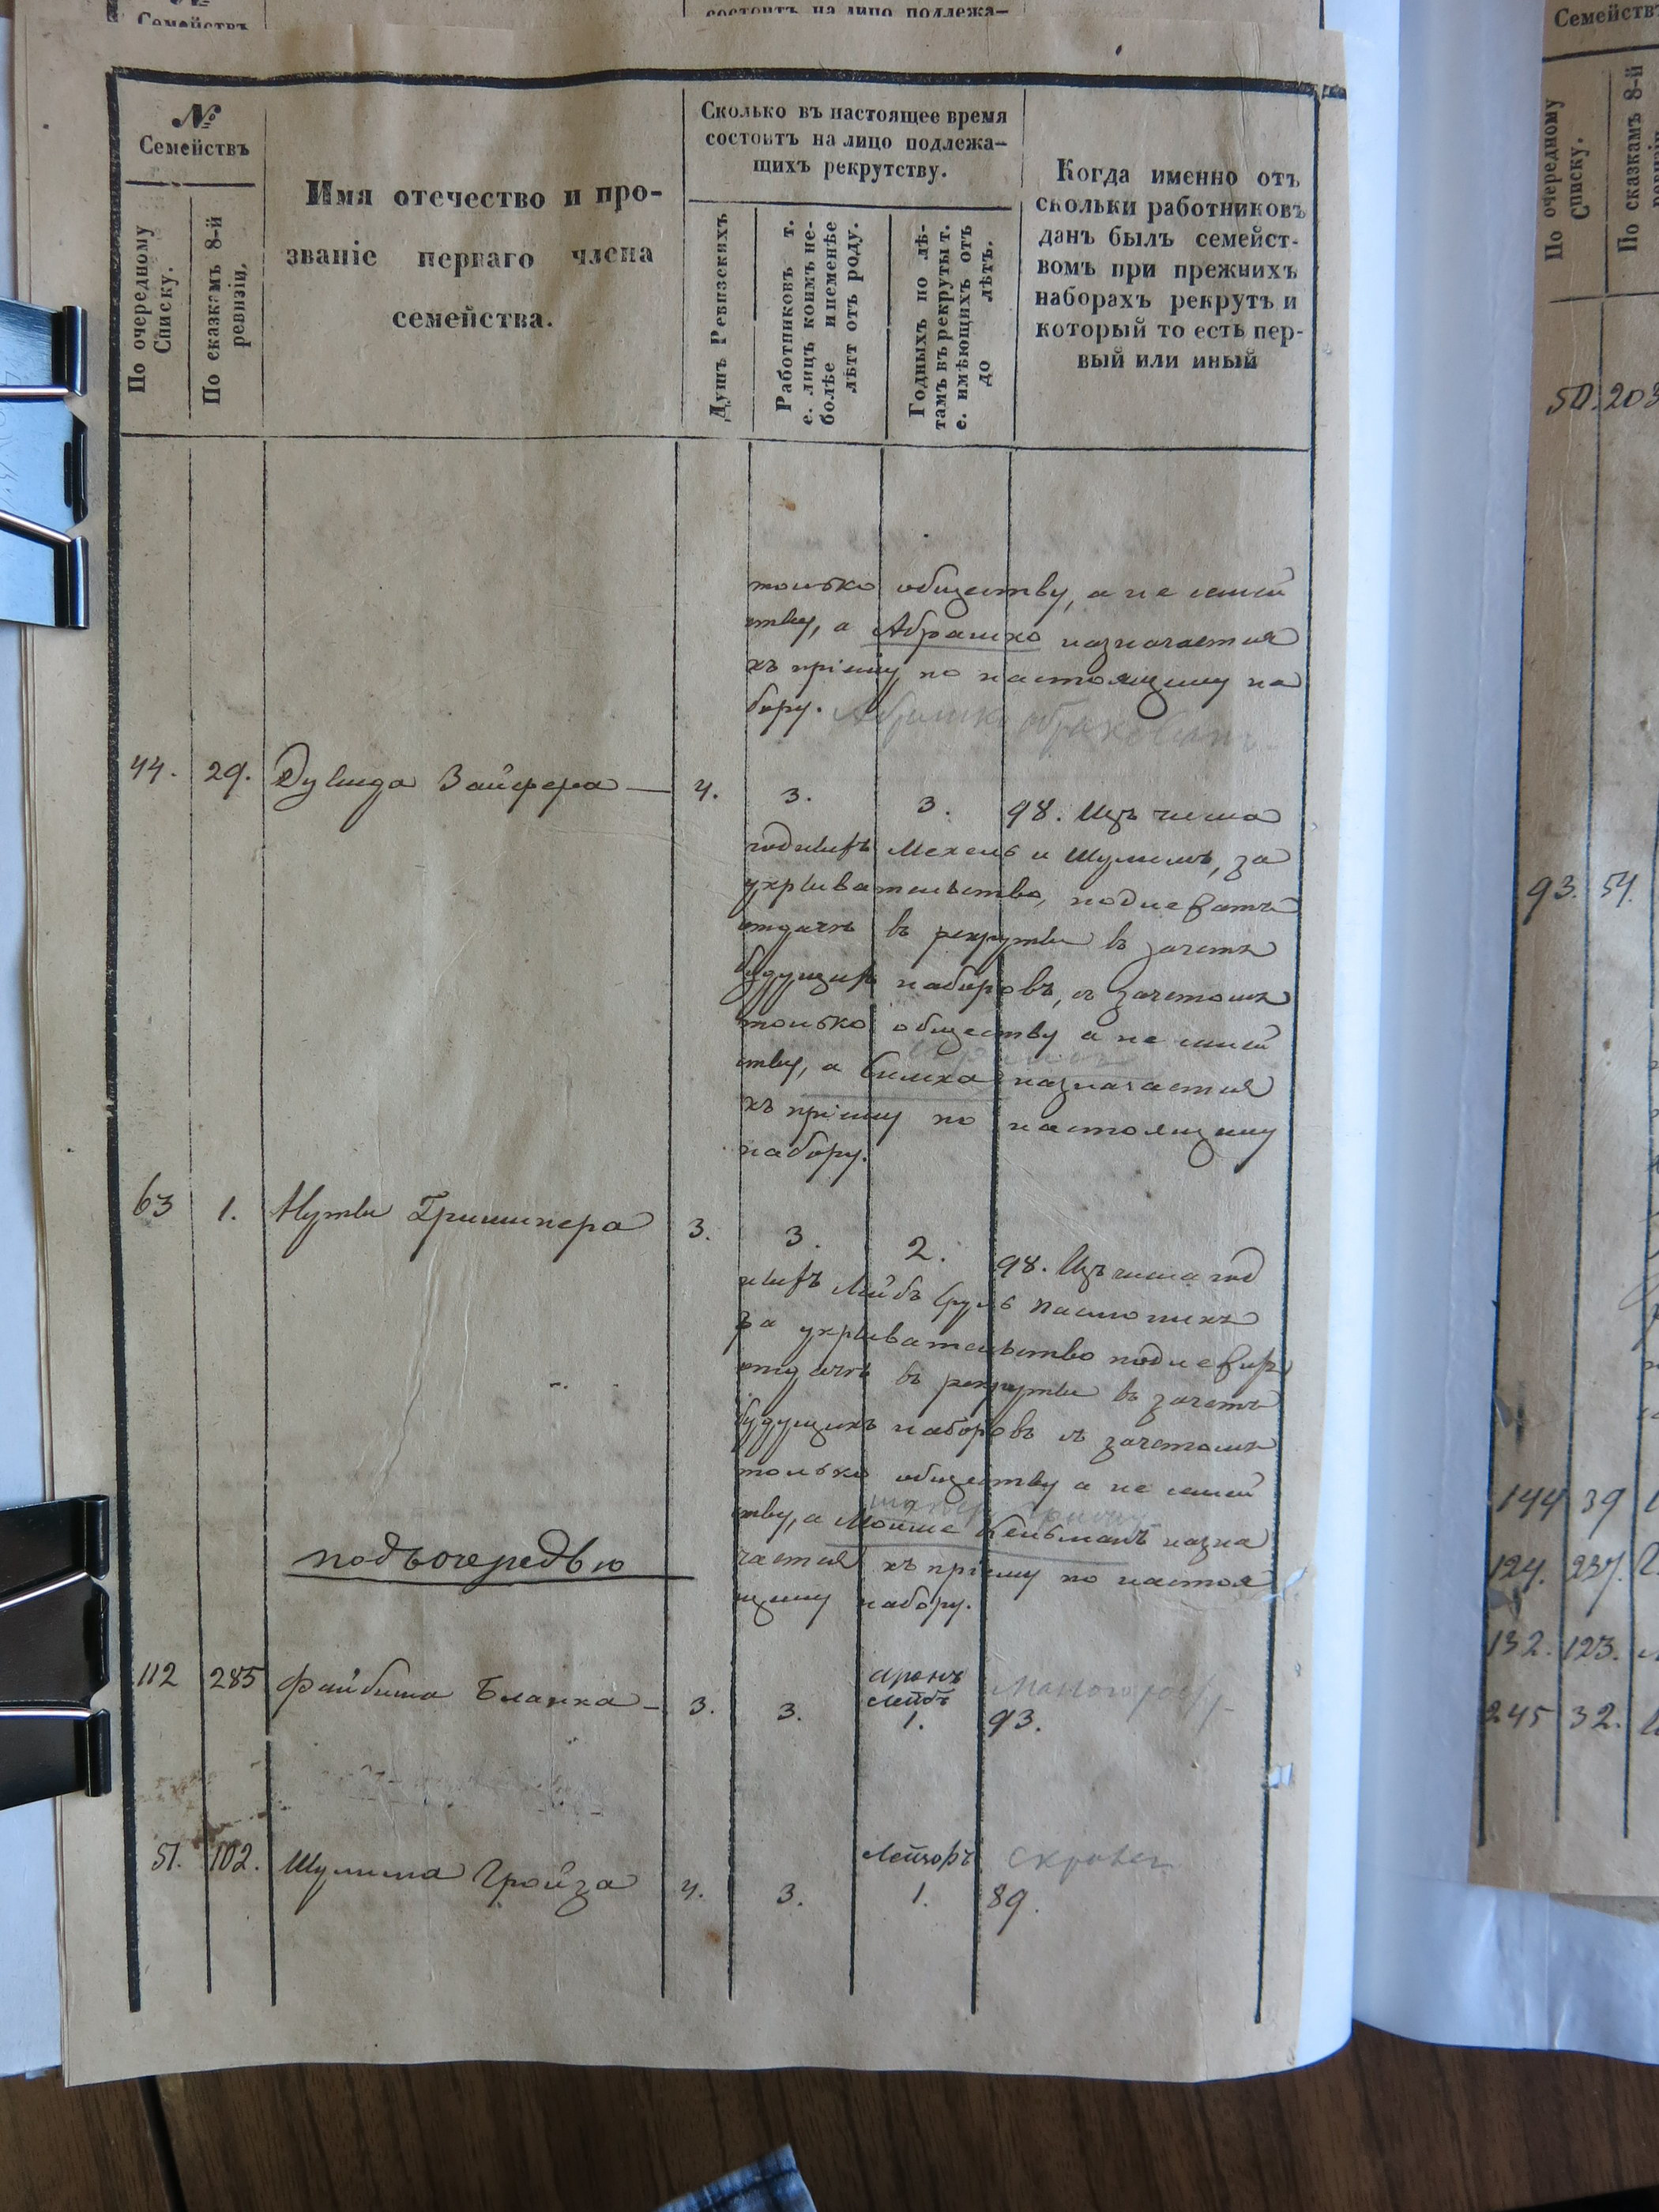 Семействъ
состоитъ на лицо подлежа-
№
Семействъ
По очередному
Списку.
По сказкамъ 8-й
ревизіи.
Имя отечество и про-
званіе перваго члена
семейства.
Сколько въ настоящее время
состоитъ на лицо подлежа-
щихъ рекрутству.
Душъ Ревизскихъ
Работниковъ т.
е. лицъ коимъ не-
болѣе и неменѣе
лѣтъ отъ роду.
Годныхъ по лѣ-
тамъ въ рекруты т.
е. имѣющихъ отъ
до лѣтъ.
Когда именно отъ
скольки работниковъ
данъ былъ семейст-
вомъ при прежнихъ
наборахъ рекрутъ и
который то есть пер-
вый или иный
только обществу, а не семей
ству, а Абрашко назначается
къ пріему по настоящему на
бору. Абрашко обракованъ
44. 29. Дувида Зайфера — 4. 3. 3. 98. Изъ числа
годныхъ Мехель и Шулимъ, за
укрывательство, подлежатъ
отдачѣ въ рекруты въ зачетъ
будущихъ наборовъ, съ зачетомъ
только обществу а не семей
ству, а Симха назначается
къ пріему по настоящему
набору.
63 1. Нуты Гришпера 3. 3. 2. 98. Изъ числа год
ныхъ Лейбъ Сруль
за укрывательство
отдачѣ въ рекруты въ зачетъ
будущихъ наборовъ съ зачетомъ
только обществу а не семей
ству, а Мошке Кельманъ назна
чается къ пріему по настоя
щему набору.
подъочередью
112 285 Файбиша Бланка — 3. 3. Аронъ
Лейбъ
1. 93.
51. 102. Шулима Гройза 4. 3. Лейзоръ
1. 89. скрылся
Семейств
По очередному
Списку.
По сказкамъ 8-й
ревизіи
50. 203
93. 54.
144 39
124. 237.
132. 123.
245 32.